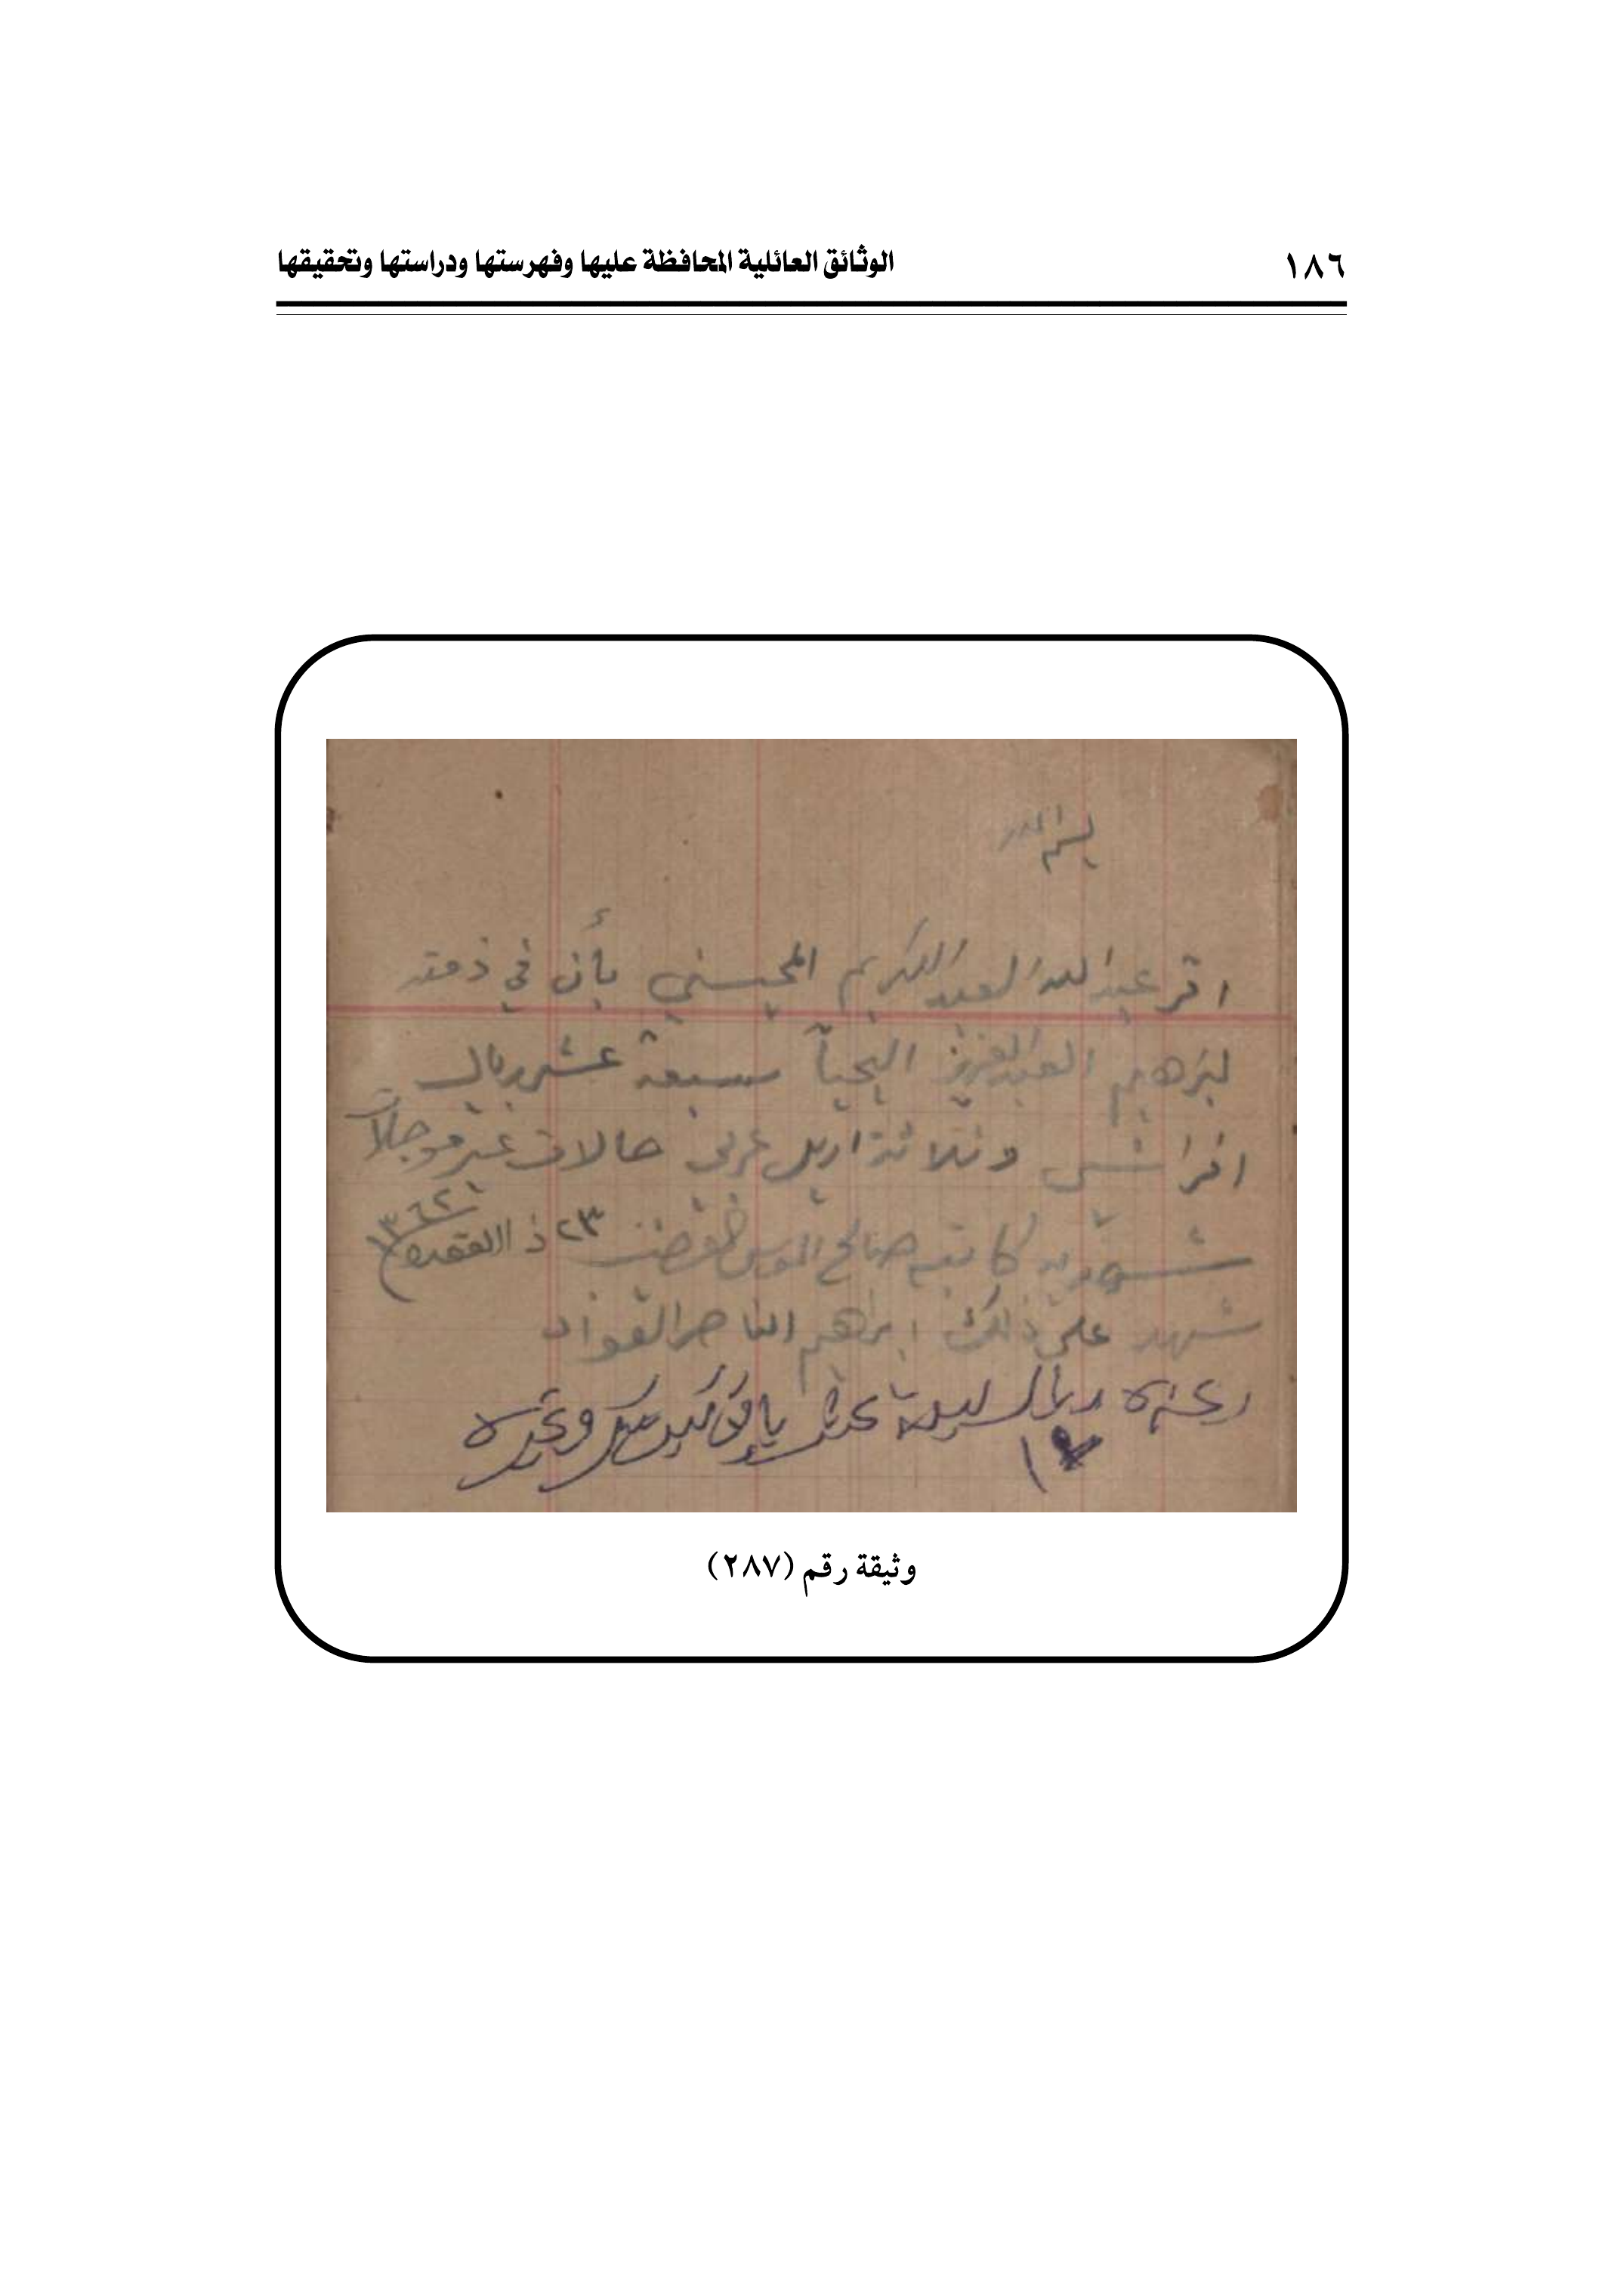 ١٨٦
الوثائق العائلية المحافظة عليها وفهرستها ودراستها وتحقيقها
بسم الله
اقر عبد الله العبد الكريم المحيسني بأن في ذمته
لبرهيم العبد العزيز اليحيا سبعة عشر ريال
افرانسي وثلاثة اريل عربي حالات غير موجلاً
شهد به كاتبه صالح ٢٣ ذا القعده ١٣٦٢
شهد على ذلك ابراهيم الناصر
ريال
وثيقة رقم (٢٨٧)